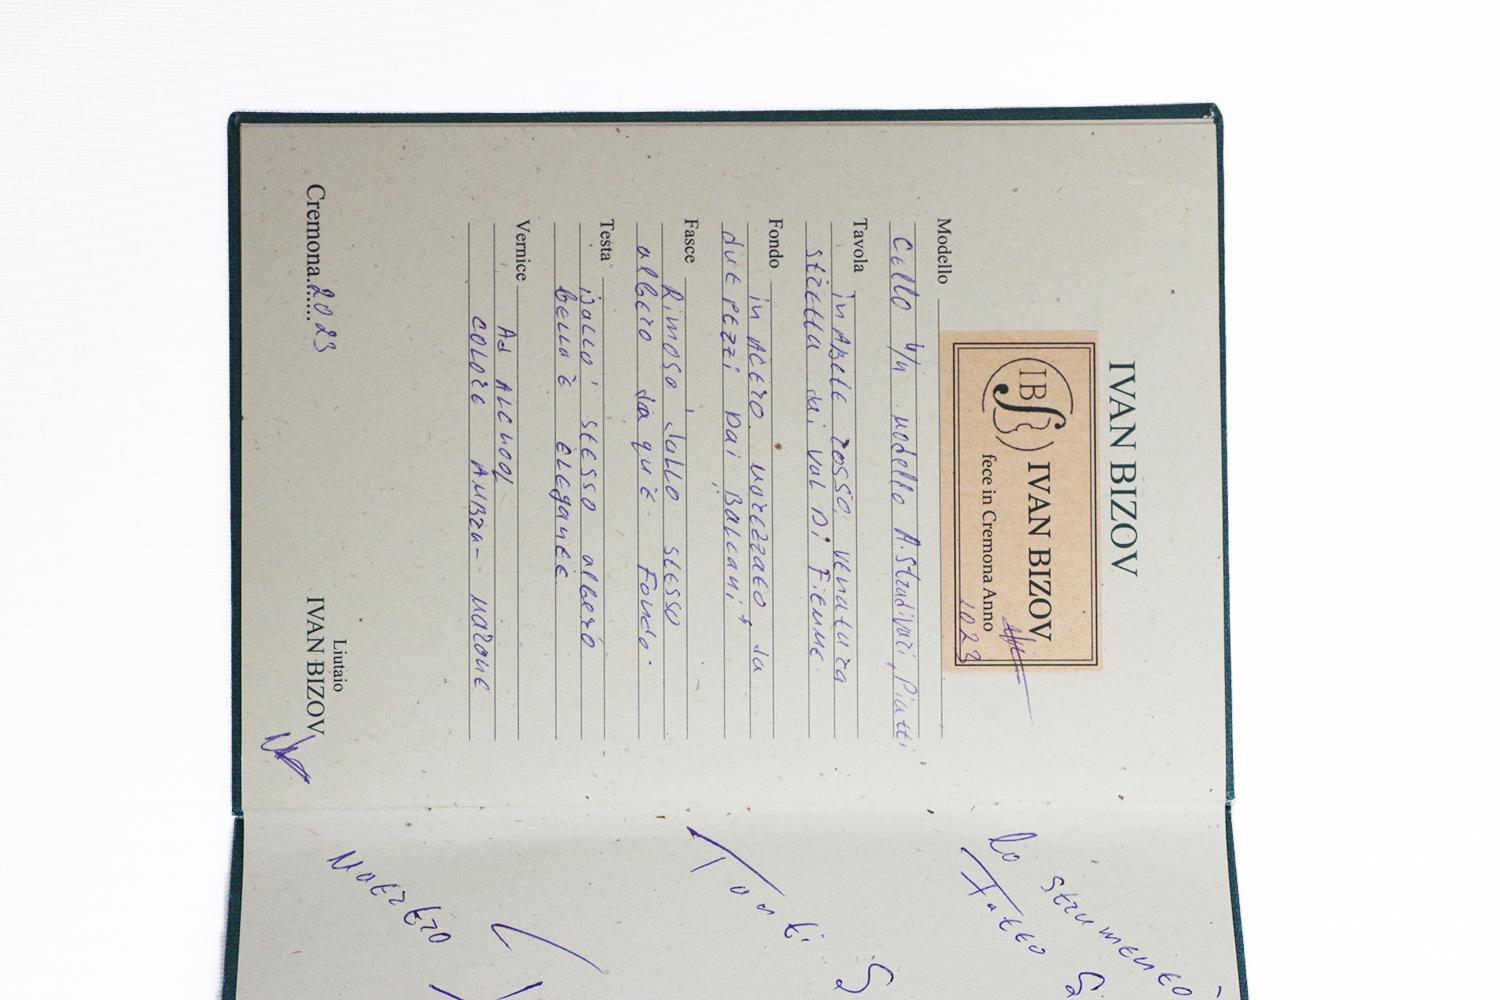 IVAN BIZOV
IB
IVAN BIZOV
fece in Cremona Anno
2023
Modello
Cello 4/4 modello A. Stradivari, Piatti
Tavola
in Abete rosso, venatura
stretta dai val Di Fiemme.
Fondo
in Acero marezzato da
due pezzi Dai Balcani
Fasce
Rimosa dallo stesso
albero da qui è Fondo.
Testa
Dallo stesso albero
bella è Elegante.
Vernice
Ad Alchool
colore Ambra- marone
Cremona......2023
Liutaio
IVAN BIZOV
lo strumento
Fatto
Tanti
Maestro